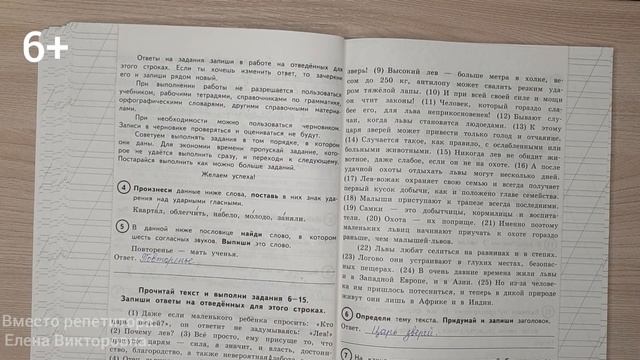 6+
Ответы на задания запиши в работе на отведённых для
этого строках. Если ты хочешь изменить ответ, то зачеркни
его и запиши рядом новый.
При выполнении работы не разрешается пользоваться
учебником, рабочими тетрадями, справочниками по грамматике,
орфографическими словарями, другими справочными материа-
лами.
При необходимости можно пользоваться черновиком.
Записи в черновике проверяться и оцениваться не будут.
Советуем выполнять задания в том порядке, в котором
они даны. Для экономии времени пропускай задание, кото-
рое не удаётся выполнить сразу, и переходи к следующему.
Постарайся выполнить как можно больше заданий.
Желаем успеха!
4 Произнеси данные ниже слова, поставь в них знак уда-
рения над ударными гласными.
Квартал, облегчить, набело, молодо, заняли.
5 В данной ниже пословице найди слово, в котором
шесть согласных звуков. Выпиши это слово.
Повторенье — мать ученья.
Ответ. Повторенье
Прочитай текст и выполни задания 6—15.
Запиши ответы на отведённых для этого строках.
(1) Даже если маленького ребёнка спросить: «Кто
зверей?», он ответит не задумываясь: «Лев!»
(2) Почему лев? (3) Все просто, ему присуще то, что
царям — сила, а значит, и власть, достоин-
ство, благородство, а также невероятная
зверь! (9) Высокий лев — больше метра в холке, ве-
сом до 250 кг, антилопу может свалить резким уда-
ром тяжёлой лапы. (10) И при всей своей силе и мощи
он чтит законы! (11) Человек, который гораздо сла-
бее его, для льва неприкосновенен! (12) Бывают слу-
чаи, когда львы становятся людоедами. (13) К этому
царя зверей может привести только голод и отчаяние.
(14) Случается такое, как правило, с ослабленными или
больными животными. (15) Никогда лев не обидит жи-
вотное, даже слабое, если он не на охоте. (16) А после
удачной охоты отдыхать львы могут несколько дней.
(17) Лев-вожак охраняет свою семью и всегда получает
первый кусок добычи, как и положено главе семейства.
(18) Малыши приступают к трапезе всегда последними.
(19) Самки — это добытчицы, кормилицы и воспита-
тели. (20) Охота — их поприще. (21) Именно поэтому
маленьких львиц начинают приучать к охоте гораздо
раньше, чем малышей-львов.
(22) Львы любят селиться на равнинах и в степях.
(23) Логово они устраивают в глухих местах, безопас-
ных пещерах. (24) В очень давние времена жили львы
и в Западной Европе, и в Азии. (25) Но из-за челове-
ка им пришлось потесниться, и теперь в дикой природе
живут они лишь в Африке и в Индии.
6 Определи тему текста. Придумай и запиши заголовок.
Ответ. Царь зверей.
7
Вместо репетитора
Елена Викторовна